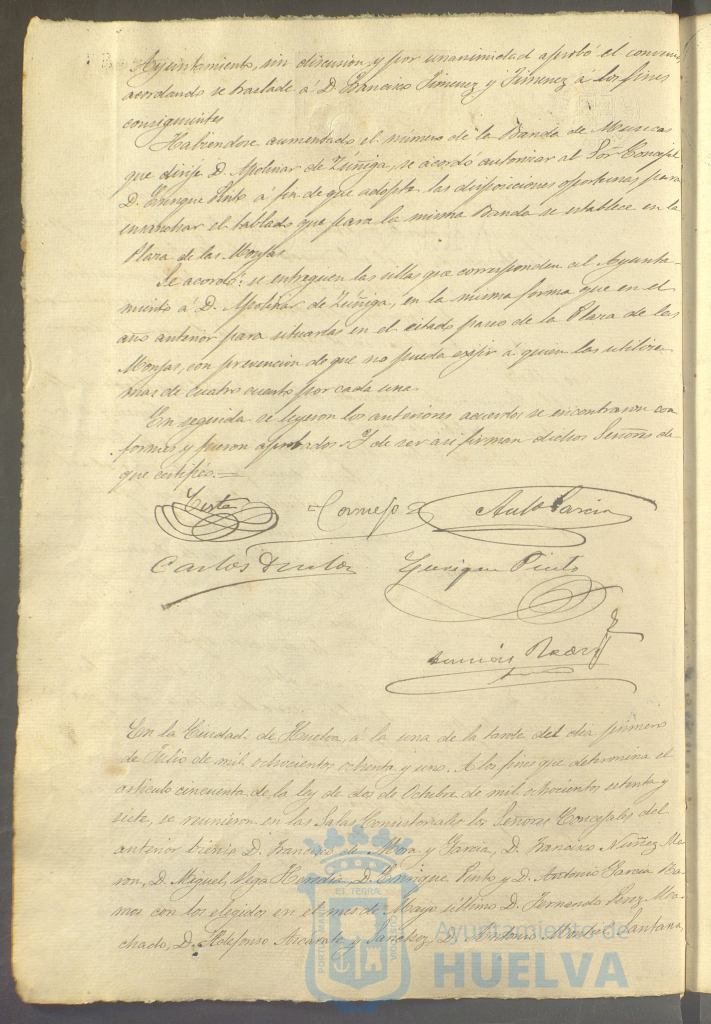 Ayuntamiento, sin discusion y por unanimidad aprobó el convenio
acordando se traslade á D. Francisco Jimenez y Jimenez á los fines
consiguientes
Habiendose aumentado el número de la Banda de Musica
que dirije D. Apolinar de Zúñiga, se acordó autorizar al Sor. Concejal
D. Enrique Pinto á fin de que adopte las disposiciones oportunas para
ensanchar el tablado que para la misma Banda se establece en la
Plaza de las Monjas
Se acordó: se entreguen las sillas que corresponden al Ayunta-
miento á D. Apolinar de Zúñiga, en la misma forma que en el
año anterior para situarlas en el citado paseo de la Plaza de las
Monjas, con prevencion de que no pueda exijir á quien las utilice
mas de cuatro cuartos por cada una.
En seguida se leyeron los anteriores acuerdos se encontraron con
formes y fueron aprobados. Y de ser asi firman dichos Señores de
que certifico.=
Cornejo Anto. Garcia
Carlos Enrique Pinto
En la Ciudad de Huelva, á la una de la tarde del dia primero
de Julio de mil ochocientos ochenta y uno. A los fines que determina el
articulo cincuenta de la ley de dos de Octubre de mil ochocientos setenta y
siete, se reunieron en las Salas Consistoriales los Señores Concejales del
anterior bienio D. Francisco de Mora y Garcia, D. Francisco Nuñez Ma-
ron, D. Miguel Vega Heredia, D. Enrique Pinto y D. Antonio Garcia Ra-
mos con los elegidos en el mes de Mayo último D. Fernando Perez Ma-
chado, D. Ildefonso y Sanchez, D. Antonio Santana,
EL TERRAL
Ayuntamiento de
HUELVA